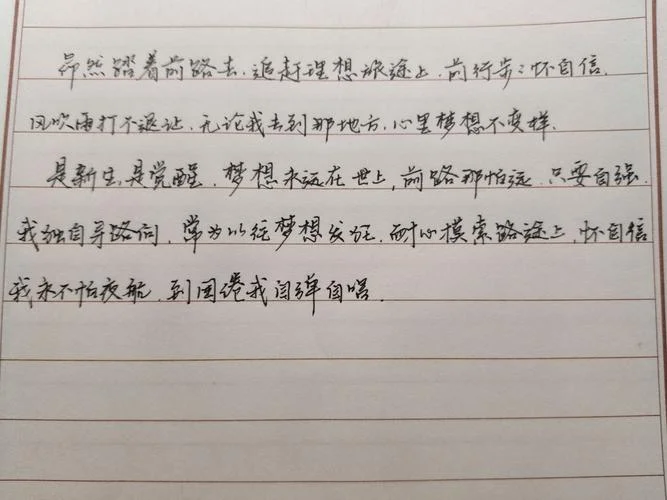 昂然踏着前路去,追赶理想旅途上,前行步々怀自信,
风吹雨打不退让,无论我去到那地方,心里梦想不变样.
是新生,是觉醒,梦想永远在世上,前路那怕远,只要自强.
我独自寻路向,常为以往梦想发狂,耐心摸索路途上,怀自信
我永不怕夜航,到困倦我自弹自唱.